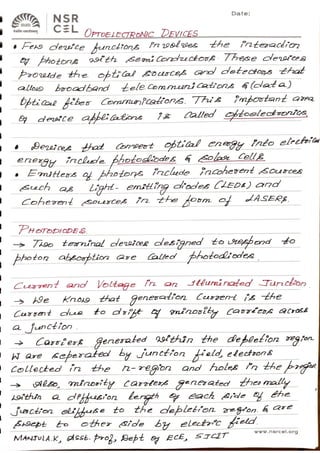 Date:
NSR
CEL
OPTOELECTRONIC DEVICES
• Few device functions involves the interaction
of photons with semiconductors These devices
provide the optical sources and detectors that
allow broadband telecommunications & (data)
Optical fiber Communications. This important area
of device applications is called optoelectronics.
• Devices that convert optical energy into electrical
energy include photodiodes & solar cells.
• Emitters of photons include incoherent sources
such as light-emitting diodes (LEDs) and
Coherent sources in the form of LASERs.
PHOTODIODES
→ Two terminal devices designed to respond to
photon absorption are called photodiodes.
Current and Voltage in an Illuminated Junction
→ We know that generation Current is the
Current due to drift of minority carriers across
a junction.
→ Carriers generated within the depletion region
W are seperated by junction field, electrons
collected in the n-region and holes in the p-region
→ Also, minority carriers generated thermally
within a diffusion length of each side of the
junction diffuse to the depletion region & are
swept to other side by electric field.
www.nsrcel.org
MANJULA.K, Asst. Prof, Dept of ECE, SJCIT